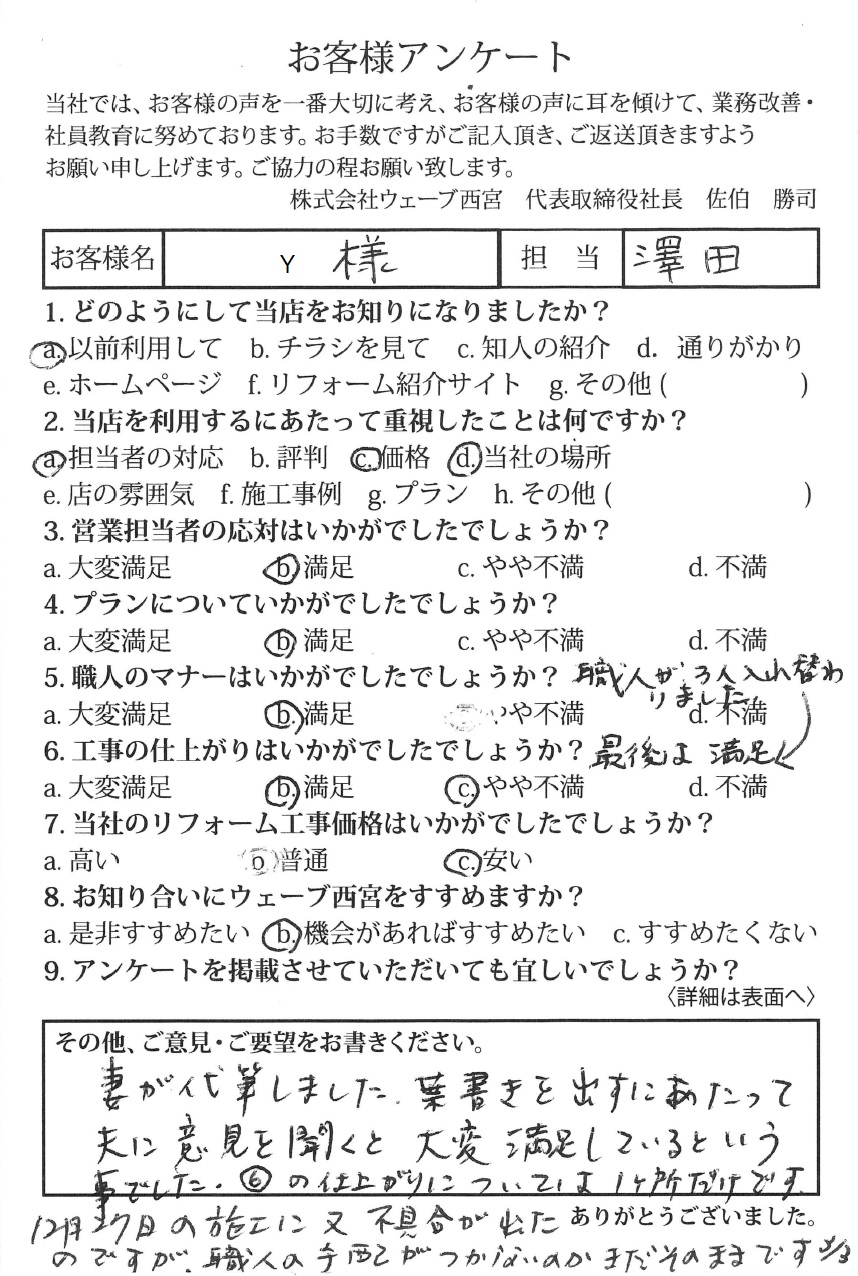 お客様アンケート
当社では、お客様の声を一番大切に考え、お客様の声に耳を傾けて、業務改善・
社員教育に努めております。お手数ですがご記入頂き、ご返送頂きますよう
お願い申し上げます。ご協力の程お願い致します。
株式会社ウェーブ西宮 代表取締役社長 佐伯 勝司
お客様名 Y 様 担当 澤田
1. どのようにして当店をお知りになりましたか？
a. 以前利用して b. チラシを見て c. 知人の紹介 d. 通りがかり
e. ホームページ f. リフォーム紹介サイト g. その他 ( )
2. 当店を利用するにあたって重視したことは何ですか？
a. 担当者の対応 b. 評判 c. 価格 d. 当社の場所
e. 店の雰囲気 f. 施工事例 g. プラン h. その他 ( )
3. 営業担当者の応対はいかがでしたでしょうか？
a. 大変満足 b. 満足 c. やや不満 d. 不満
4. プランについていかがでしたでしょうか？
a. 大変満足 b. 満足 c. やや不満 d. 不満
5. 職人のマナーはいかがでしたでしょうか？ 職人が3人入れ替わ
りました
a. 大変満足 b. 満足 やや不満 d. 不満
6. 工事の仕上がりはいかがでしたでしょうか？ 最後は満足
a. 大変満足 b. 満足 c. やや不満 d. 不満
7. 当社のリフォーム工事価格はいかがでしたでしょうか？
a. 高い b 普通 c. 安い
8. お知り合いにウェーブ西宮をすすめますか？
a. 是非すすめたい b. 機会があればすすめたい c. すすめたくない
9. アンケートを掲載させていただいても宜しいでしょうか？
〈詳細は表面へ〉
その他、ご意見・ご要望をお書きください。
妻が代筆しました。葉書きを出すにあたって
夫に意見を聞くと大変満足しているという
事でした。⑥の仕上がりについては1ヶ所だけです。
ありがとうございました。
12月27日の施工に又不具合が出た
のですが、職人の手配がつかないのかまだそのままです 3/3